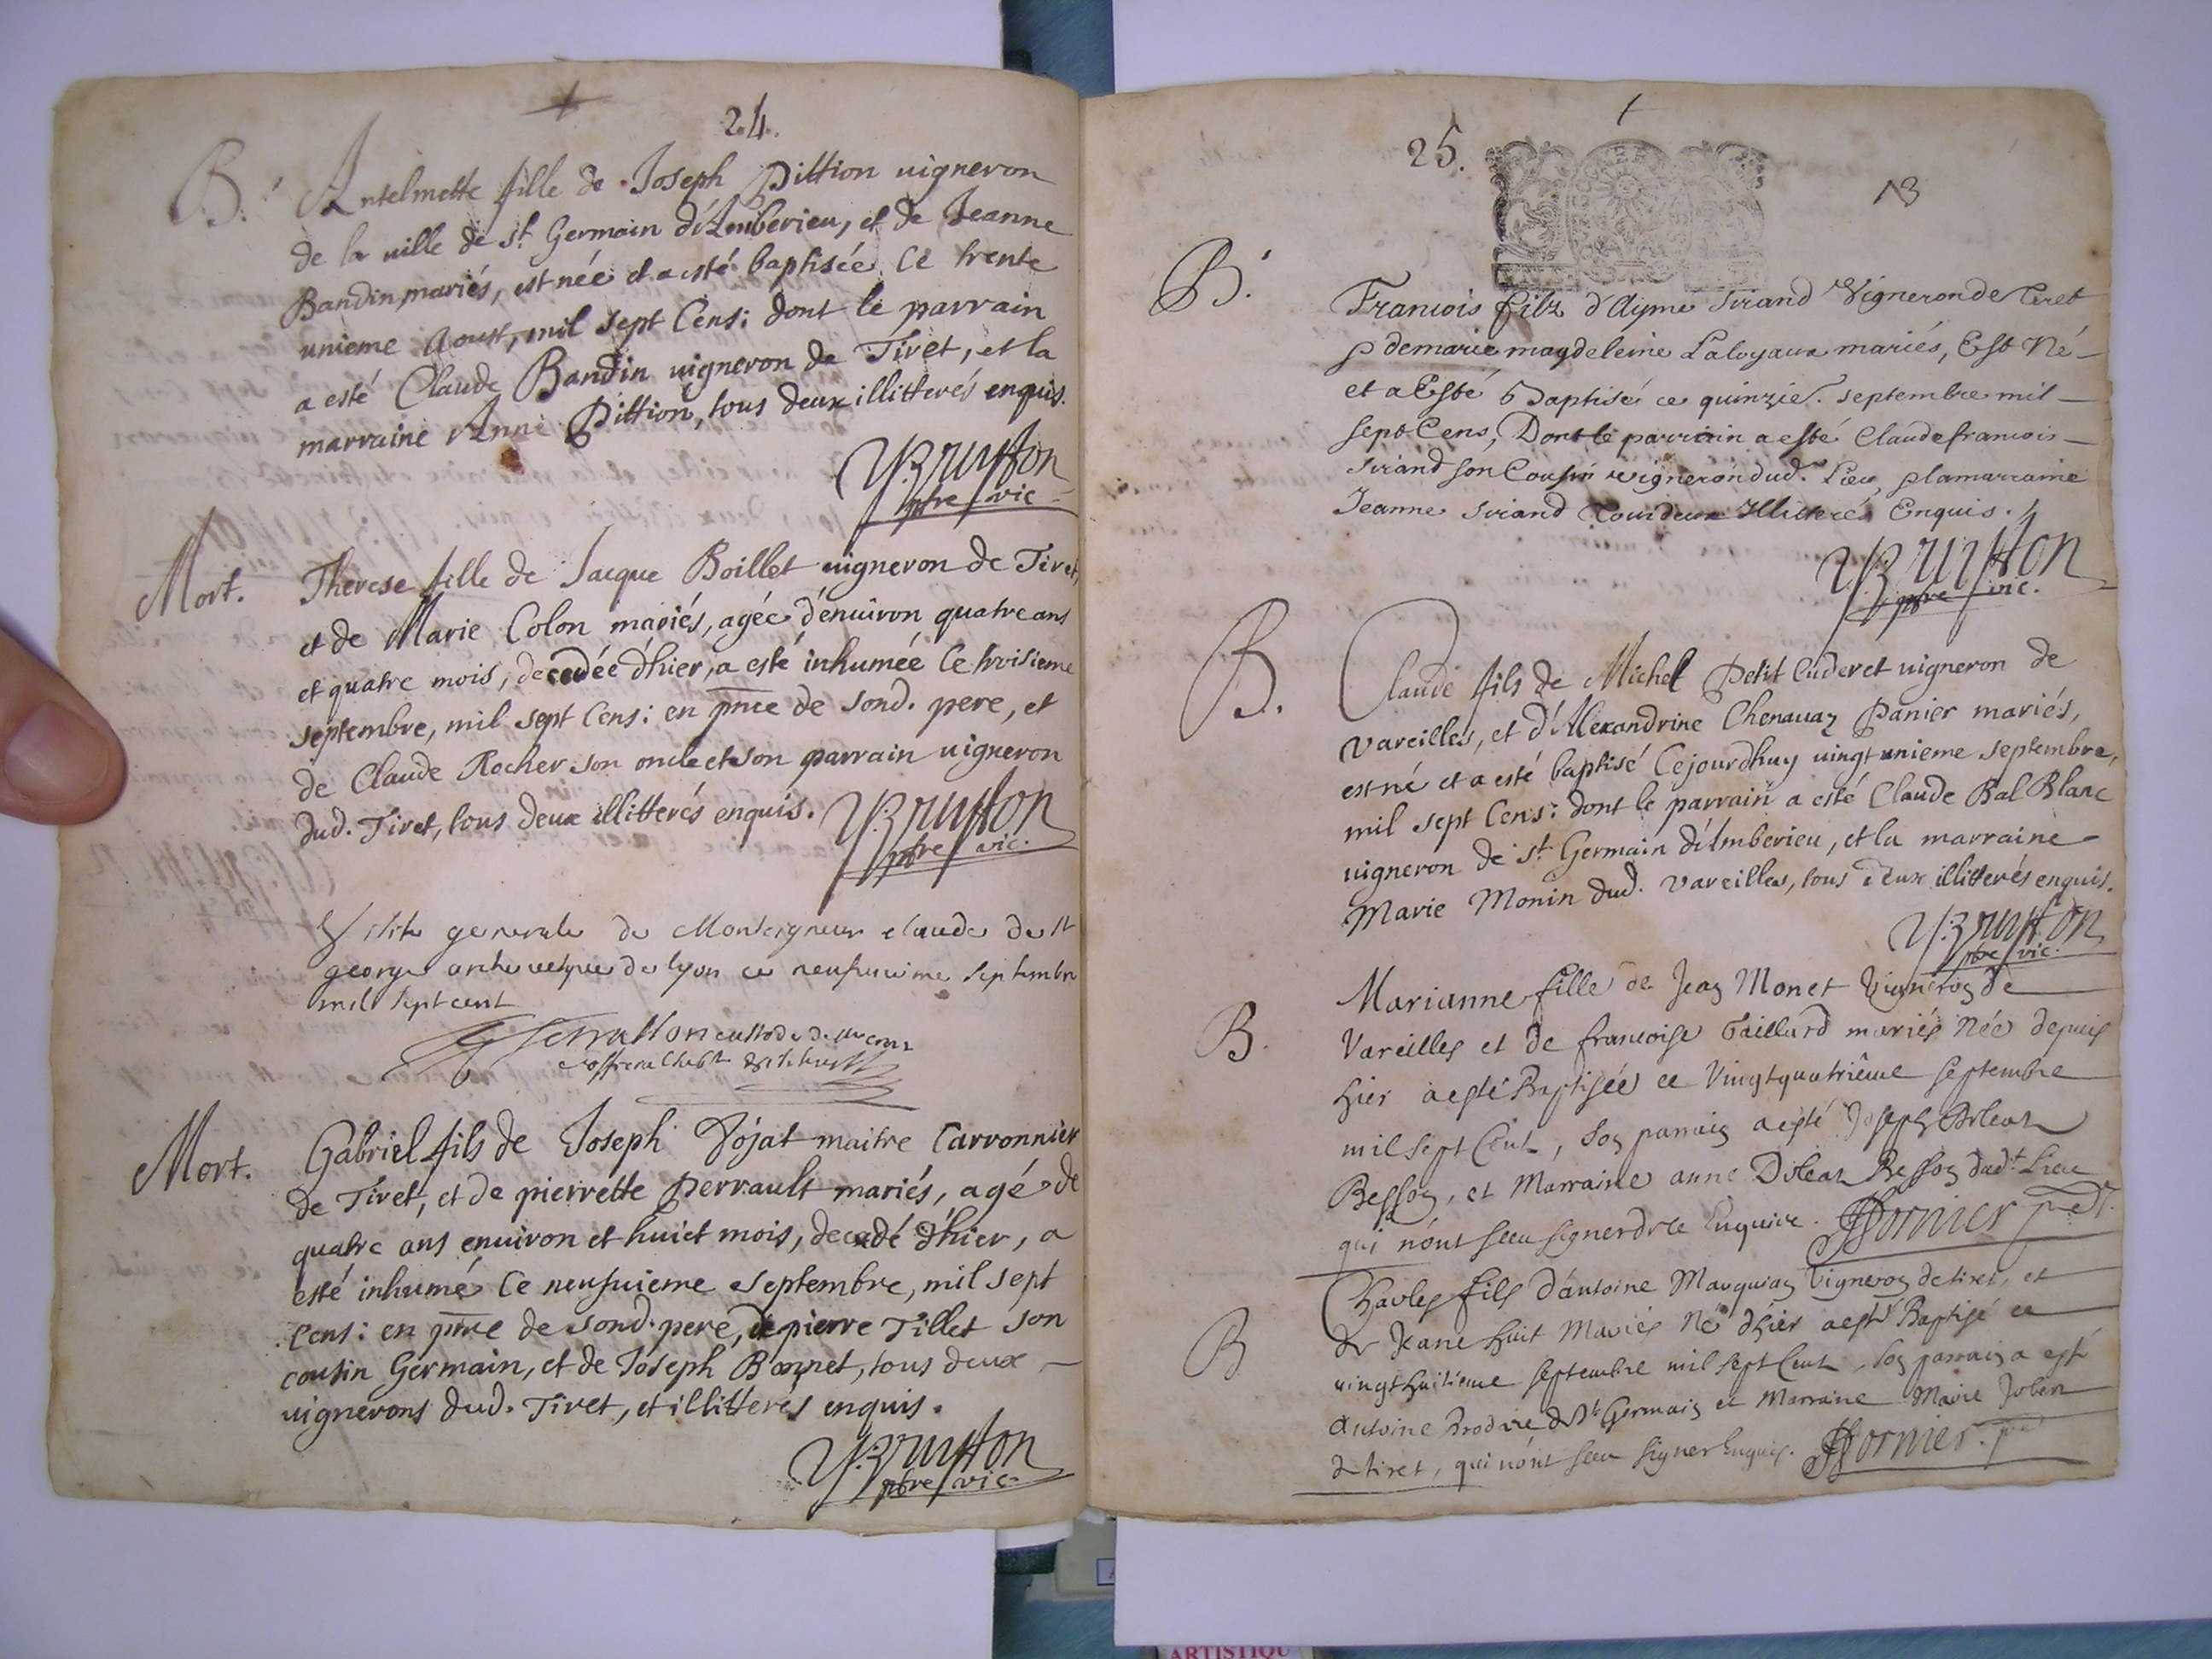 24.
B. Antelmette fille de Joseph Dittion uigneron
de la uille de st Germain d'Amberieu, et de Jeanne
Bandin mariés, est née et a esté baptisée ce trente
unieme Aoust, mil sept Cens: dont le parrain
a esté Claude Bandin uigneron de Tiret, et la
marraine Anne Dittion, tous deux illitterés enquis.
ptre vic
Mort. Therese fille de Jacque Boillet uigneron de Tiret,
et de Marie Colon mariés, agée d'enuiron quatre ans
et quatre mois, decedée d'hier, a esté inhumée Ce troisieme
septembre, mil sept Cens: en pnce de sond. pere, et
de Claude Rocher son oncle et son parrain uigneron
dud. Tiret, tous deux illitterés enquis.
ptre vic.
Visite generale de Monseigneur claude de st
george archeuesque de lyon ce neufuieme septembre
mil sept cent
Mort. Gabriel fils de Joseph Dojat maitre Carronnier
de Tiret, et de pierrette Perrault mariés, agé de
quatre ans enuiron et huict mois, decedé d'hier, a
esté inhumé Ce neufuieme septembre, mil sept
Cens: en pnce de sond. pere, de pierre Tillet son
cousin Germain, et de Joseph Bonnet, tous deux
uignerons dud. Tiret, et illitterés enquis.
ptre vic.
25.
13
B. Francois filz d'Ayme Sirand Vigneron de Tiret
& de marie magdeleine Laloyaux mariés, Est Né
et a Esté Baptisé ce quinzie. septembre mil
sept Cens, Dont le parrein a esté Claude francois
Sirand son Cousin vigneron dud. Lieu, & la marraine
Jeanne Sirand Tou deux Illitterés Enquis.
ptre vic.
B. Claude fils de Michel Petit Cuderet uigneron de
Vareilles, et d'Alexandrine Chenauaz Panier mariés,
est né et a esté baptisé Cejourdhuy uingt unieme septembre,
mil sept Cens: dont le parrain a esté Claude Bal Blanc
uigneron de st Germain d'Amberieu, et la marraine
Marie Monin dud. Vareilles, tous deux illitterés enquis.
ptre vic.
B. Marianne fille de Jean Monet Vigneron de
Vareilles et de francoise Gaillard mariés Née depuis
hier a esté Baptisée ce Vingt quatriême septembre
mil sept Cent, son parrain a esté Joseph
Besson, et Marraine anne Besson dudt Lieu
qui n'ont sceu signer de ce Enquis. Fornier
B Charles fils d'antoine Mauguin Vigneron de tiret, et
de Jeane huit Mariés Né d'hier a esté Baptisé ce
uingt huitieme septembre mil sept Cent, son parrain a esté
Antoine Brodire de st Germain et Marraine Marie
de tiret, qui n'ont sceu signer Enquis. Fornier.
ARTISTIQU